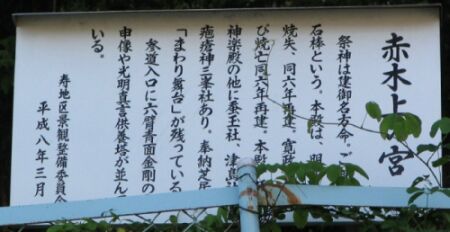 赤木上
宮
祭神は建御名方命。ご
石棒という。本殿は、明
焼失、同六年再建、寛政
び焼亡同六年再建、本殿
神楽殿の他に蚕玉社、津島
疱瘡神三峯社あり。奉納芝居
「まわり舞台」が残っている
参道入口に六臂青面金剛の
申像や光明真言供養塔が並ん
いる。
寿地区景観整備委員会
平成八年三月